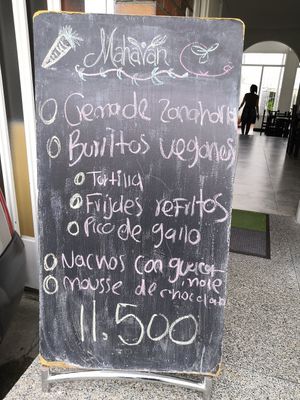 Maharan
Crema de Zanahoria
Burritos veganos
Tortilla
Frijoles refritos
Pico de gallo
Nachos con guaca
mole
mousse de chocolate
11.500